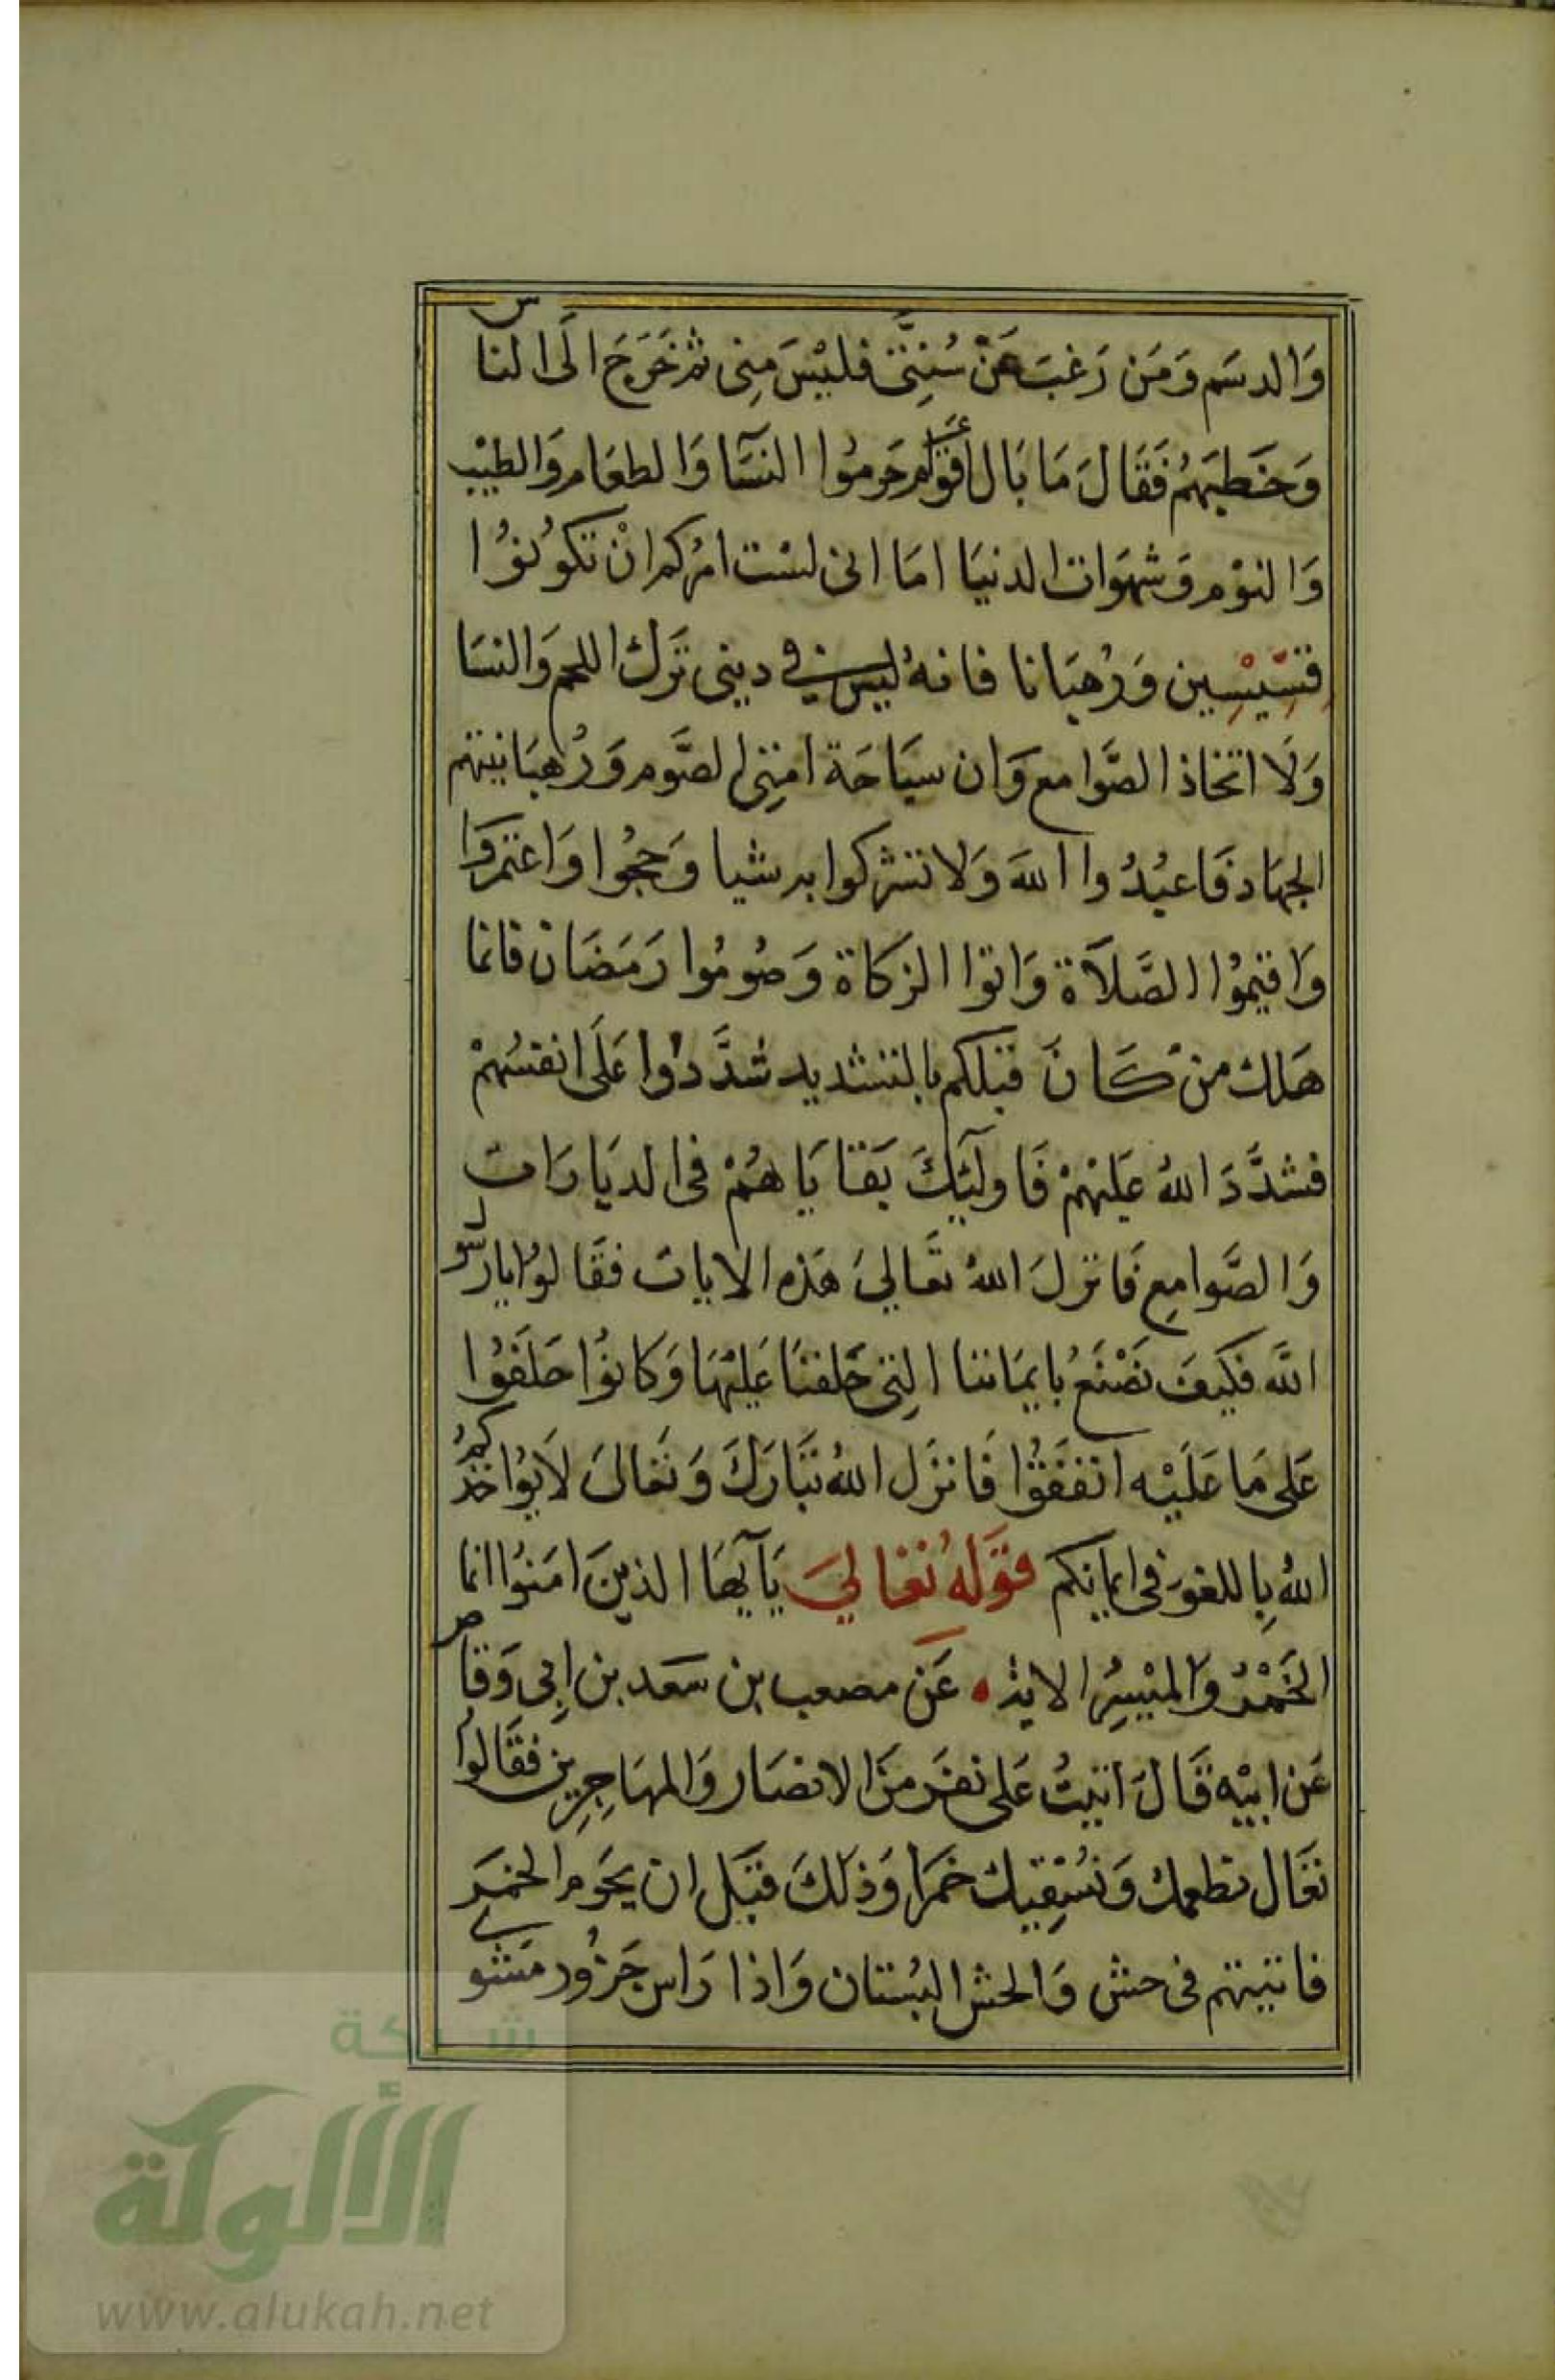 وَالدسَم وَمَن رَغبَ عَنْ سُنِتَّى فليْسَ مِنى ثم خَرَجَ الَى الناس
وَخَطبَهُم فَقَالَ مَا بَال أقوَام حَرموُا النسَآ وَالطعَام وَالطيْب
وَالنوْم وَشهوَات الدنيَا امَا انى لسْت امرُكم انْ تكوُنوُا
قِسِّيْسِين وَرُهبَانا فانهُ ليس في دينى تَرك اللحم وَالنسَا
وَلَا اتخاذ الصَّوامع وَان سيَاحَة امتِى الصَّوم وَرُهبَانيتهم
الجهَاد فَاعبُدُوا اللهَ وَلا تشركوا به شيا وَحجُوا وَاعتمروَا
وَاقيموُا الصَّلَاة وَاتوا الزكاة وَصُومُوا رَمَضَان فانما
هَلك منْ كَانَ قبَلكم بالتشديد شدَّدوُا عَلَى انفسُهمْ
فشدَّدَ اللهُ عَليْهمْ فَاولَئِكَ بَقايَاهُمْ فى الديَارَات
وَالصَّوامِع فَانزلَ اللهُ تعَالىَ هَذه الايات فقَالوُا يارسول
اللَّه فكيَف نصْنَعُ بايمَاننا التِى حَلفنَا عَليْهَا وَكانوُا حَلَفوُا
عَلى مَا عَلَيْه اتفقَوُا فَانزَل اللهُ تبَارَكَ وَتعَالىَ لَا يوُاخذكمُ
اللهُ بِاللغو فى ايمانِكم قَوَلهُ تعَالىَ يَآيهَا الذينَ امَنوُا انما
الخَمْرُ وَالميْسِرُ الاية عَن مصعب بن سَعد بن ابِى وَقاص
عَن ابيْه قَالَ اتيتُ عَلى نفَر منَ الانصَار وَالمهَاجِرِين فقَالوُا
تعَال نطعمك وَنسُقِيك خمرَا وَذلكَ قبَل ان يحَرم الخمَر
فاتيتهم فى حش وَالحش البُستان وَاذا رَاس جَزوُر مَشوي
شبكة
الألوكة
www.alukah.net